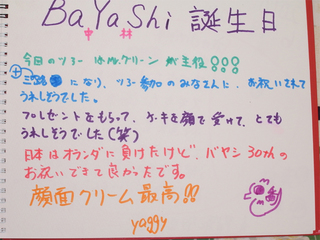 BaYaShi 誕生日
中 井
今回のツアーはMr.グリーンが主役!!!
三路 になり、ツアー参加のみなさんに、お祝いされて
うれしそうでした。
プレゼントをもらって、ケーキを顔で受けて、とても
うれしそうでした(笑)
日本はオランダに負けたけど、バヤシ30thの
お祝いできて良かったです。
顔面クリーム最高!!
yaggy